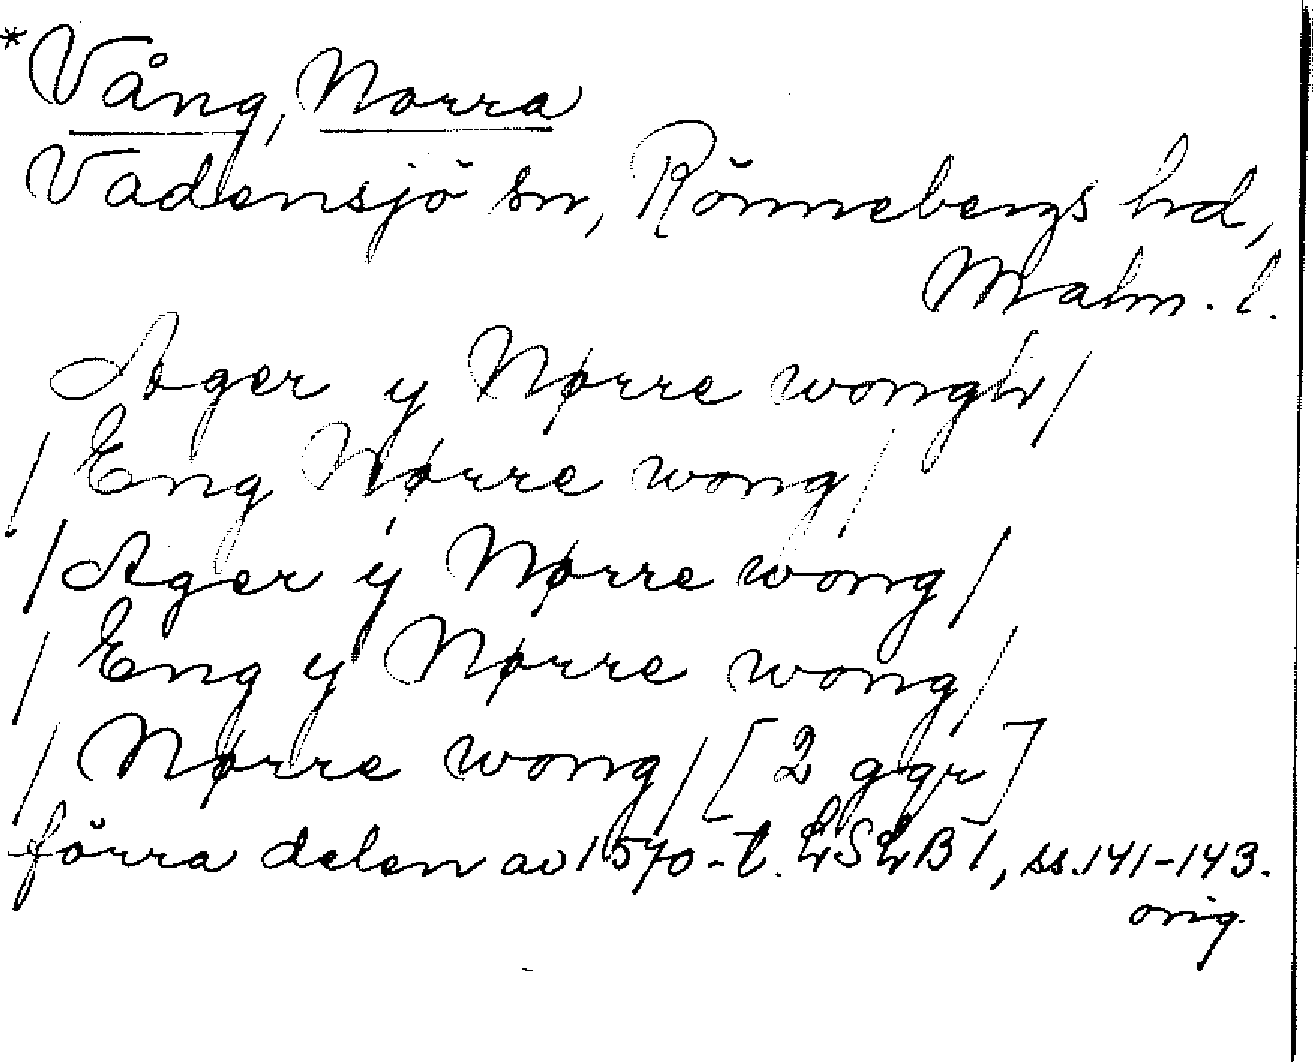 *Vång, Norra
Vadensjö sn, Rönnebergs hd,
Malm. l.
Ager y Nørre wongh/
/ Eng Nørre wong/
/ Ager ý Nørre wong/
/ Eng y Nørre wong/
/ Nørre wong/ [2 ggr]
förra delen av 1570-t. LSLB 1, ss. 141-143.
orig.